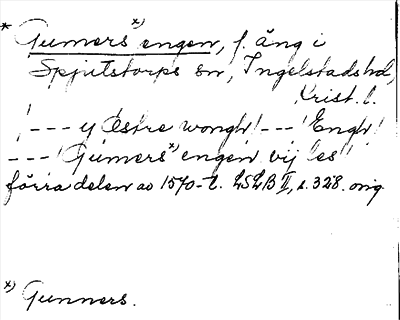 * Gumers *) engen, f. äng i
Spjutstorps sn, Ingelstads hd,
Krist. l.
! - - - y Østre wongh! - - - ! Engh!
- - - ! Gumers *) engen vij les !
förra delen av 1570-t. LSLB II, s. 328. orig.
*) Gunners.